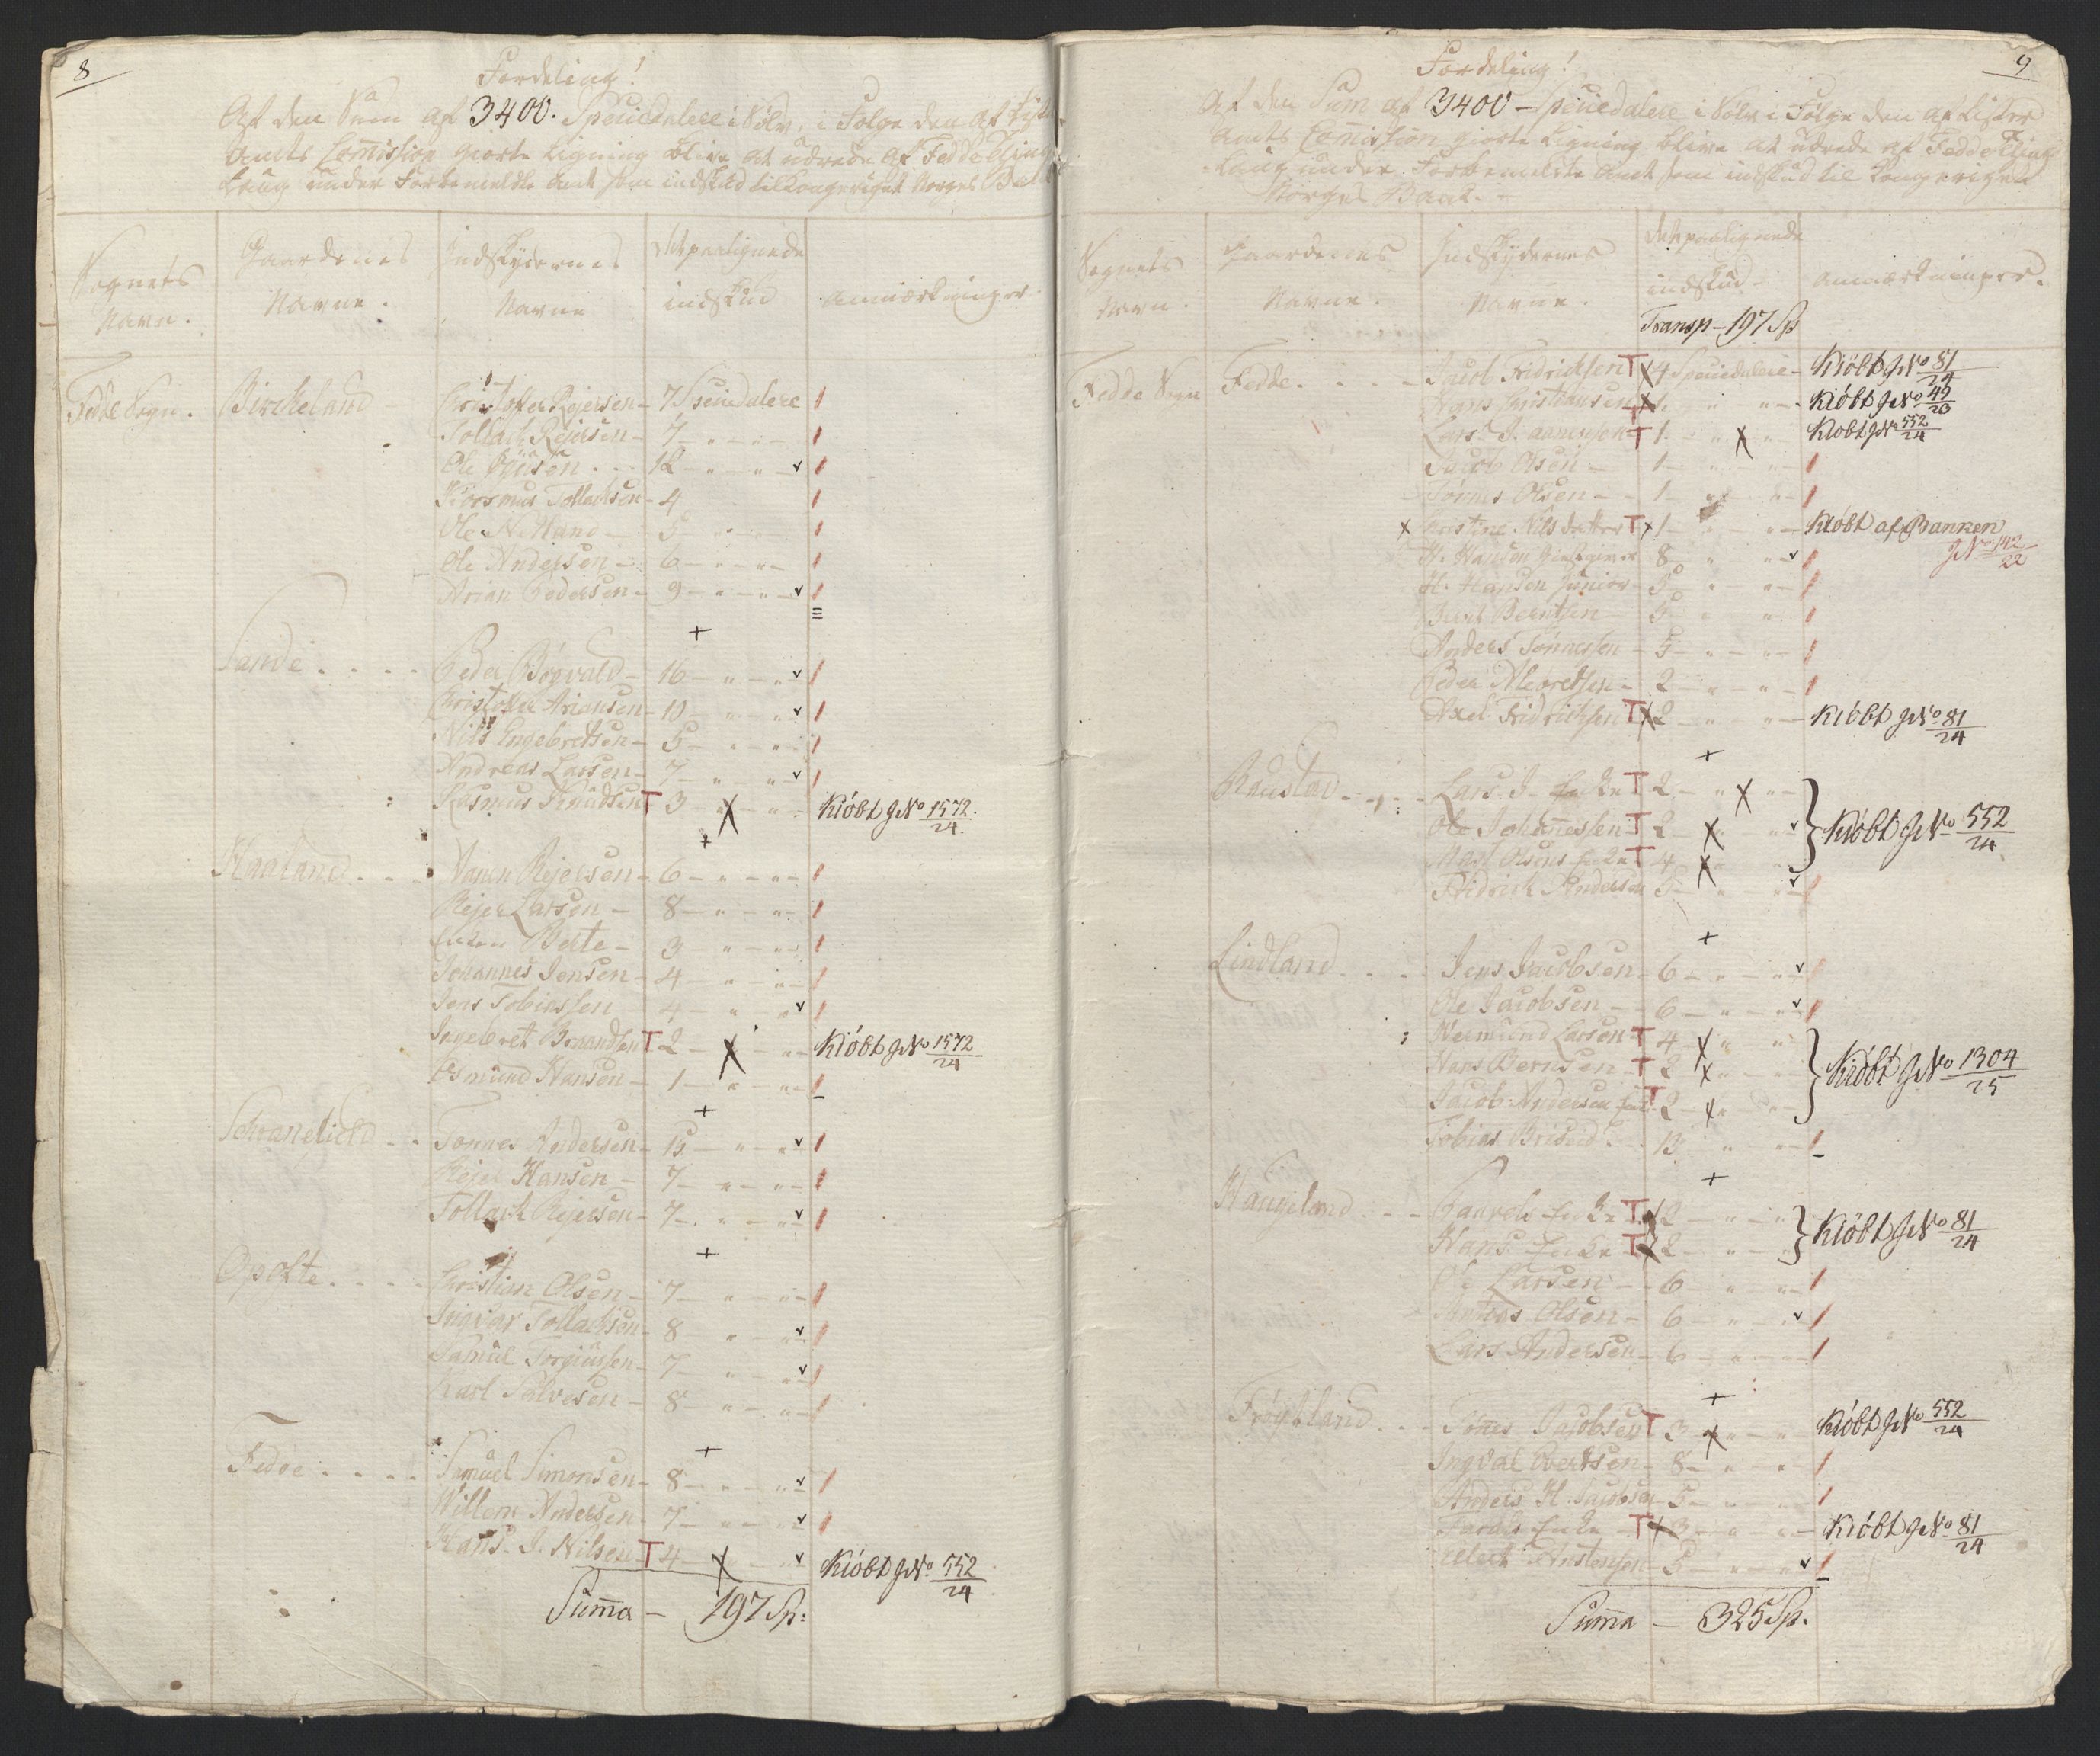 8
Fordeling!
Af den Sum af 3400. Speciedalere i Sølv, i Følge den af List
Amts Commission giorte Ligning blive at udrede af Fedde Ting
Laug under Forbemeldte Amt som indskud til Kongeriget Norges Ba
Sognets Navn.
Gaardenes Navne.
Indskydernes Navne
Det paalignede indskud
Anmærkninger.
Fedde Sogn. Birckeland Christopher Rejersen - 7 Speciedalere
Tollach Rejersen - 7
Ole - 12
Rasmus Tollachsen - 4
Ole - 5
Ole Andersen - 6
Arian Pedersen - 9
Sande Peder Bøgvald - 16
Christopher Ariansen - 10
Nils Engebretsen - 5
Andreas Larsen - 7
Rasmus Knudsen T 3 Kiöbt JNo 1572/24.
Haaland Aanen Rejersen - 6
Rejer Larsen - 8
Enken Berte - 3
Johannes Jensen - 4
Jens Tobiassen 4
Ingebret T 2 Kiöbt JNo 1572/24
Osmund Hansen - 1
Schranefield Tønnes Andersen - 15
Rejer Hansen - 7
Tollach Rejersen - 7
Opofte Christian Olsen - 7
Ingvar Tollachsen 8
Samuel Torgiussen - 7
Carl Salvesen - 8
Fedde Samuel Simonsen - 8
Willem Andersen - 7
Hans J. Nilsen - T 4 Kiöbt JNo 552/24
Summa - 197 Sp:
9
Fordeling!
Af den Sum af 3400 - Speciedalere i Sølv i Følge den af Lister
Amts Commission giorte Ligning blive at udrede af Fedde Ting
Laug under Forbemeldte Amt som indskud til Kongeriget
Norges Bank.
Sognets Navn.
Gaardenes Navne.
Indskydernes Navne.
Det paalignede indskud
Anmærkninger.
Transp - 197 Sp
Fedde Sogn Fedde Jacob Fridrichsen T 4 Speciedalere - Kiöbt JNo 81/24
Christiansen T 1 Kiöbt JNo 49/23
Lars T 1 Kiöbt JNo 552/24
Jacob Olsen - 1
Tønnes Olsen - 1
Christine Nilsdatter T 1 Kiöbt af Banken
JNo 142/22
H. Hansen Giestgiver 8
H. Hansen Junior - 5
Berntsen - 5
Anders Tønnessen - 5
Peder - 2
Axel Fridrichsen T 2 Kiöbt JNo 81/24
Raustad Lars J. Enke T 2
Ole Johannessen T 2 Kiöbt JNo 552/24
Olsens Enke T 4
Fridrick Andersen 5
Lindland Jens Jacobsen - 6
Ole Jacobsen - 6
Larsen T 4
Hans Berntsen - T 2 Kiöbt JNo 1304/25
Jacob Andersen T 2
Tobias - 13
Haugeland Enke T 2 Kiöbt JNo 81/24
Hans Enke T 2
Ole Larsen - 6
Olsen - 6
Lars Andersen - 6
Frøytland Tønes Jacobsen T 3 Kiöbt JNo 552/24
Ingvar - 8
Anders H. Jacobsen - 5
Enke - T 3 Kiöbt JNo 81/24
- 5
Summa - 325 Sp.